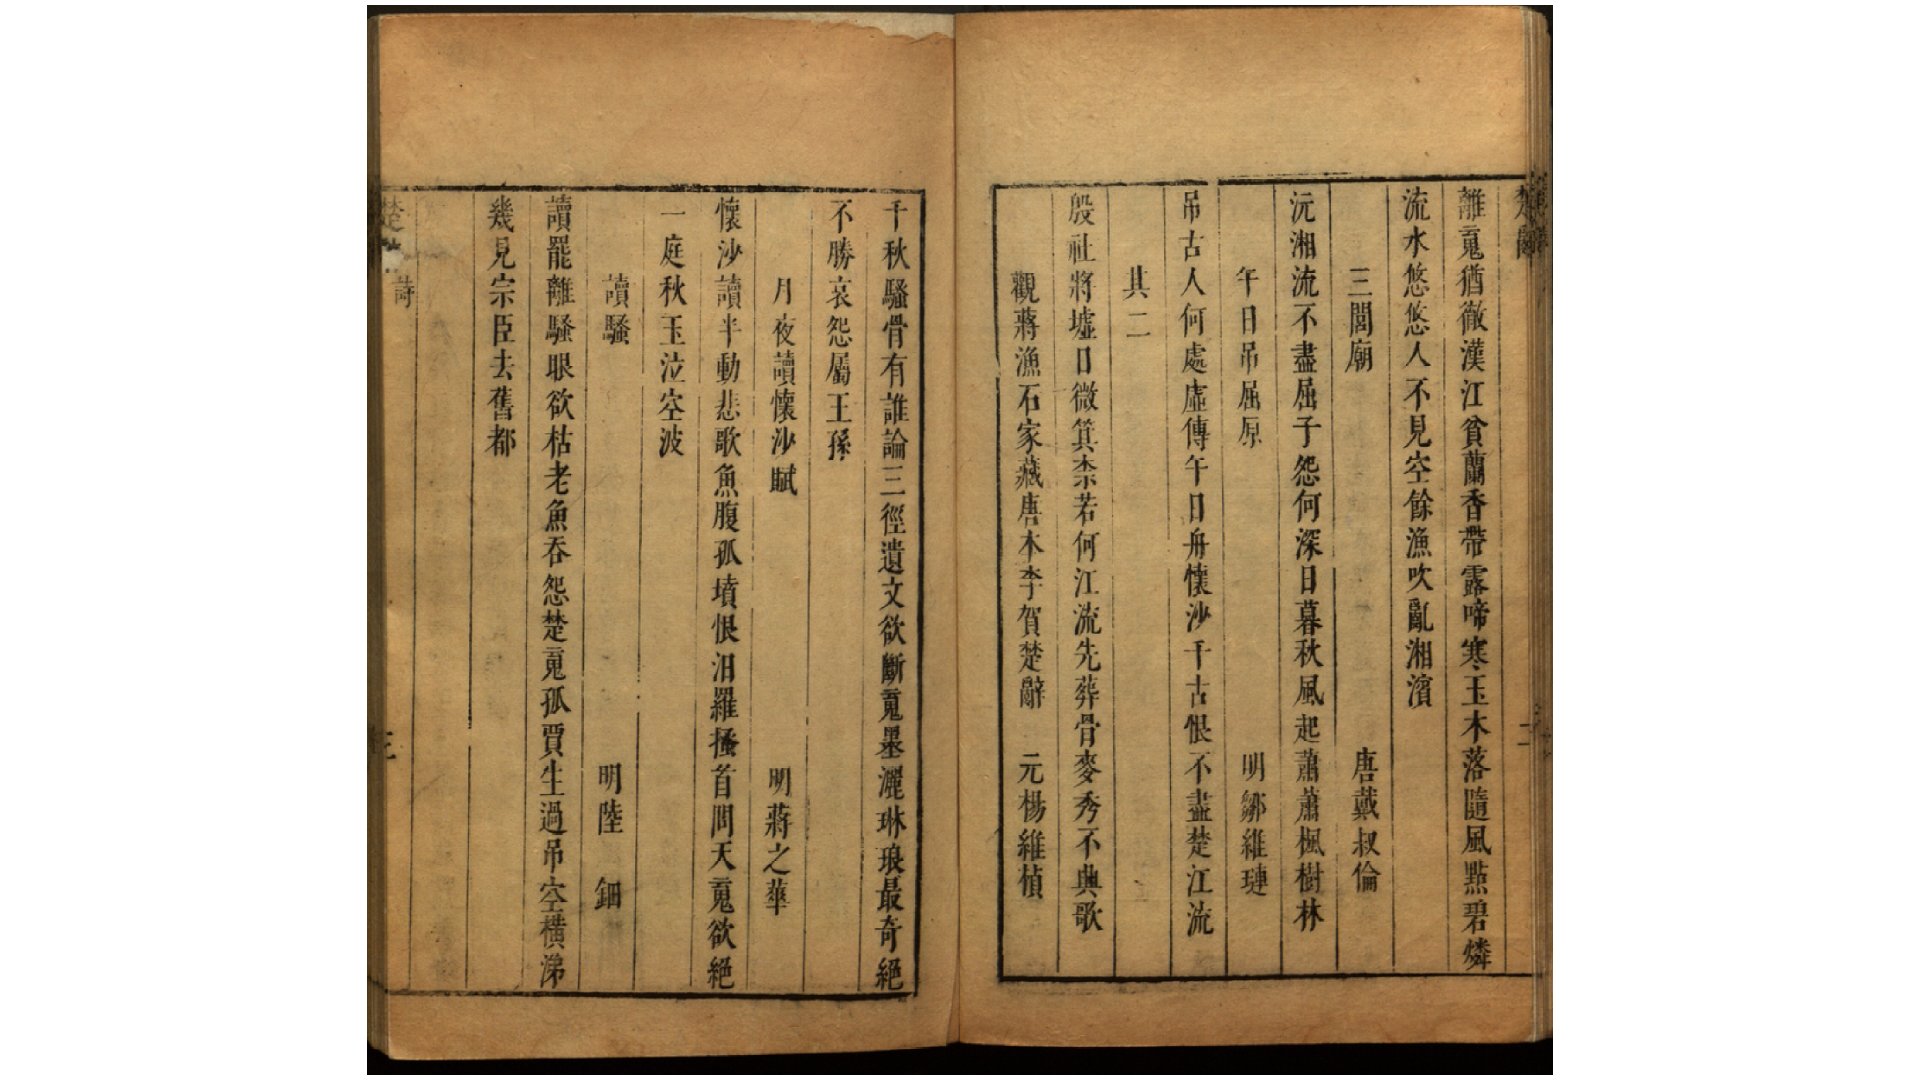 離䰟猶徹漢江貧蘭香帶露啼寒玉木落隨風點碧燐
流水悠悠人不見空餘漁吹亂湘濱
三閭廟 唐戴叔倫
沅湘流不盡屈子怨何深日暮秋風起蕭蕭楓樹林
午日吊屈原 明鄒維璉
吊古人何處虛傳午日舟懷沙千古恨不盡楚江流
其二
殷社將墟日微箕柰若何江流先葬骨麥秀不典歌
觀蔣漁石家藏唐本李賀楚辭 元楊維楨
千秋騷骨有誰論三徑遺文欲斷䰟墨灑琳琅最奇絕
不勝哀怨屬王孫
月夜讀懷沙賦 明蔣之華
懷沙讀半動悲歌魚腹孤墳恨汨羅搔首問天䰟欲絕
一庭秋玉泣空波
讀騷 明陸鈿
讀罷離騷眼欲枯老魚吞怨楚䰟孤賈生過吊空橫涕
幾見宗臣去舊都
楚 詩 三